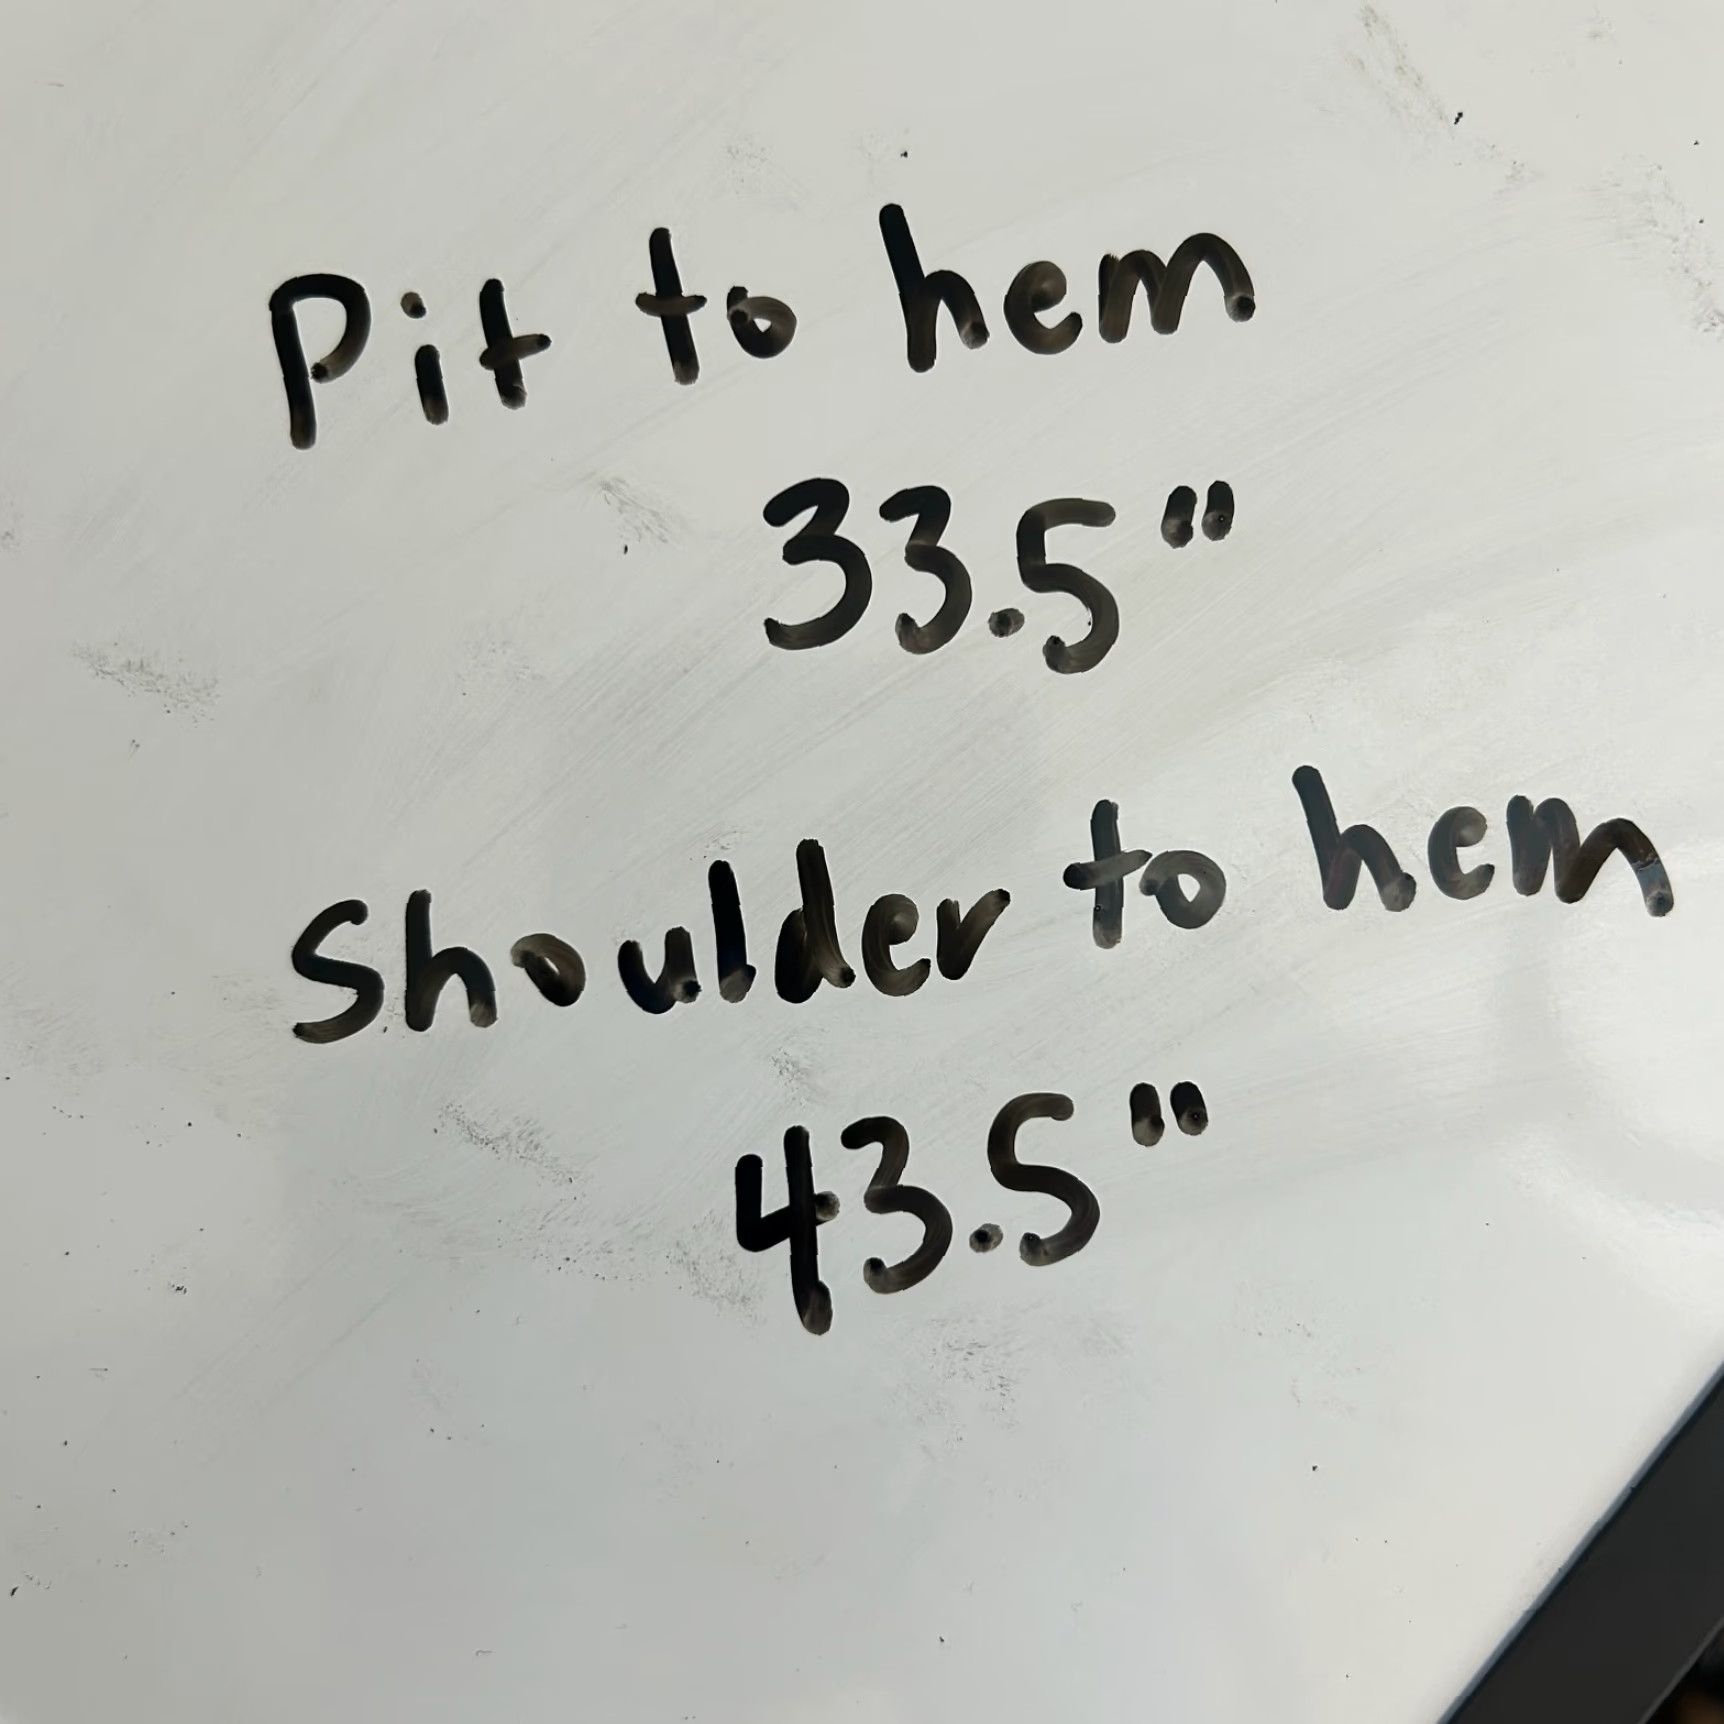 Pit to hem
33.5"
Shoulder to hem
43.5"